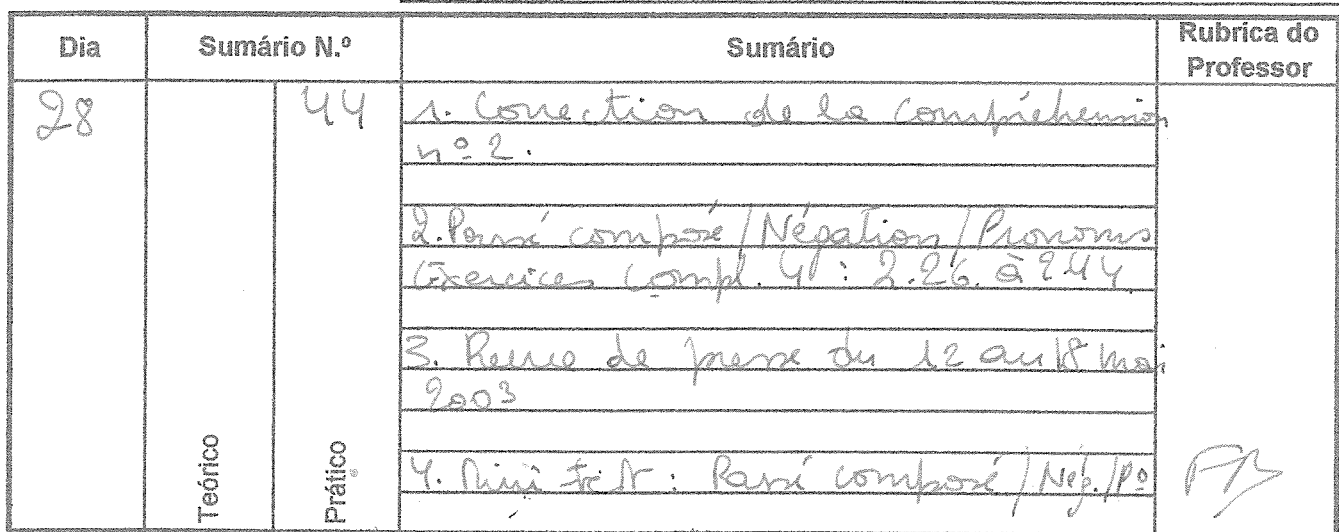 Dia Sumário N.º Sumário Rubrica do Professor
28 44 1. Correction de la compréhension
nº 2.
2. Passé composé / Négation / Pronoms
Exercices compl. 4 : 2.26. à 2.44
3. Revue de presse du 12 au 18 mai
2003
Teórico Prático 4. Mini test : Passé composé / Nég. / Pº FB